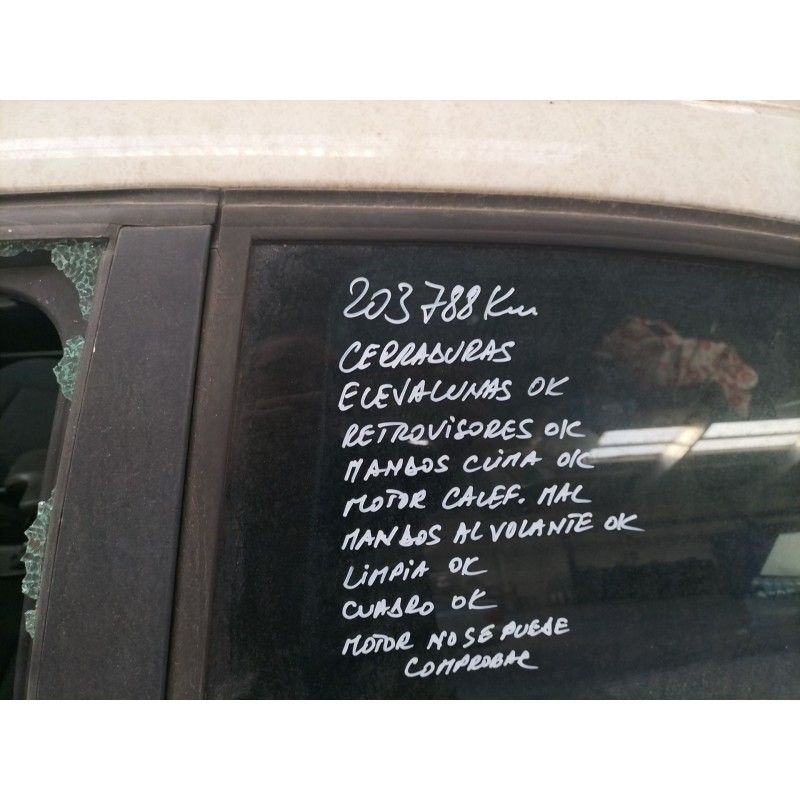 203788 Km
CERRADURAS
ELEVALUNAS OK
RETROVISORES OK
MANDOS CLIMA OK
MOTOR CALEF. MAL
MANDOS AL VOLANTE OK
LIMPIA OK
CUADRO OK
MOTOR NO SE PUEDE
COMPROBAR